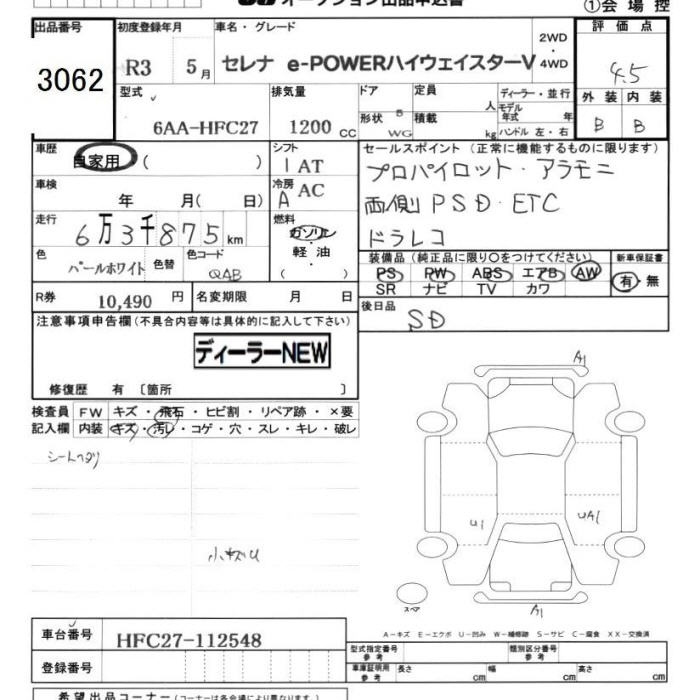 オークション出品申込書
①会場控
出品番号 初度登録年月 車名・グレード 2WD 評価点
3062 R3 5月 セレナ e-POWERハイウェイスターV 4WD 4.5
型式 排気量 ドア 定員 人 ディーラー・並行 外装 内装
6AA-HFC27 1200cc 形状 WG 積載 kg モデル年式 年 ハンドル 左・右 B B
車歴 自家用 ( ) シフト IAT セールスポイント (正常に機能するものに限ります)
車検 年 月( 日) 冷房 A AC プロパイロット・アラモニ
両側PSD・ETC
走行 6万3千875km 燃料 ガソリン 軽油 ( ) ドラレコ
色 パールホワイト 色替 色コード QAB 装備品 (純正品に限り○をつけてください) 新車保証書
PS PW ABS エアB AW 有・無
SR ナビ TV カワ
R券 10,490円 名変期限 月 日 後日品
SD
注意事項申告欄 (不具合内容等は具体的に記入して下さい)
ディーラーNEW
修復歴 有 〔箇所 〕
検査員 FW キズ・飛石・ヒビ割・リペア跡・×要
記入欄 内装 キズ・汚レ・コゲ・穴・スレ・キレ・破レ
シートヘタリ
小キズU
A1
U1
UA1
A1
スペア
A-キズ E-エクボ U-凹み W-補修跡 S-サビ C-腐食 XX-交換済
車台番号 HFC27-112548 型式指定番号 参考 類別区分番号 参考
登録番号 車庫証明用 参考 長さ cm 幅 cm 高さ cm
希望出品コーナー (コーナーは各会場により異なります)